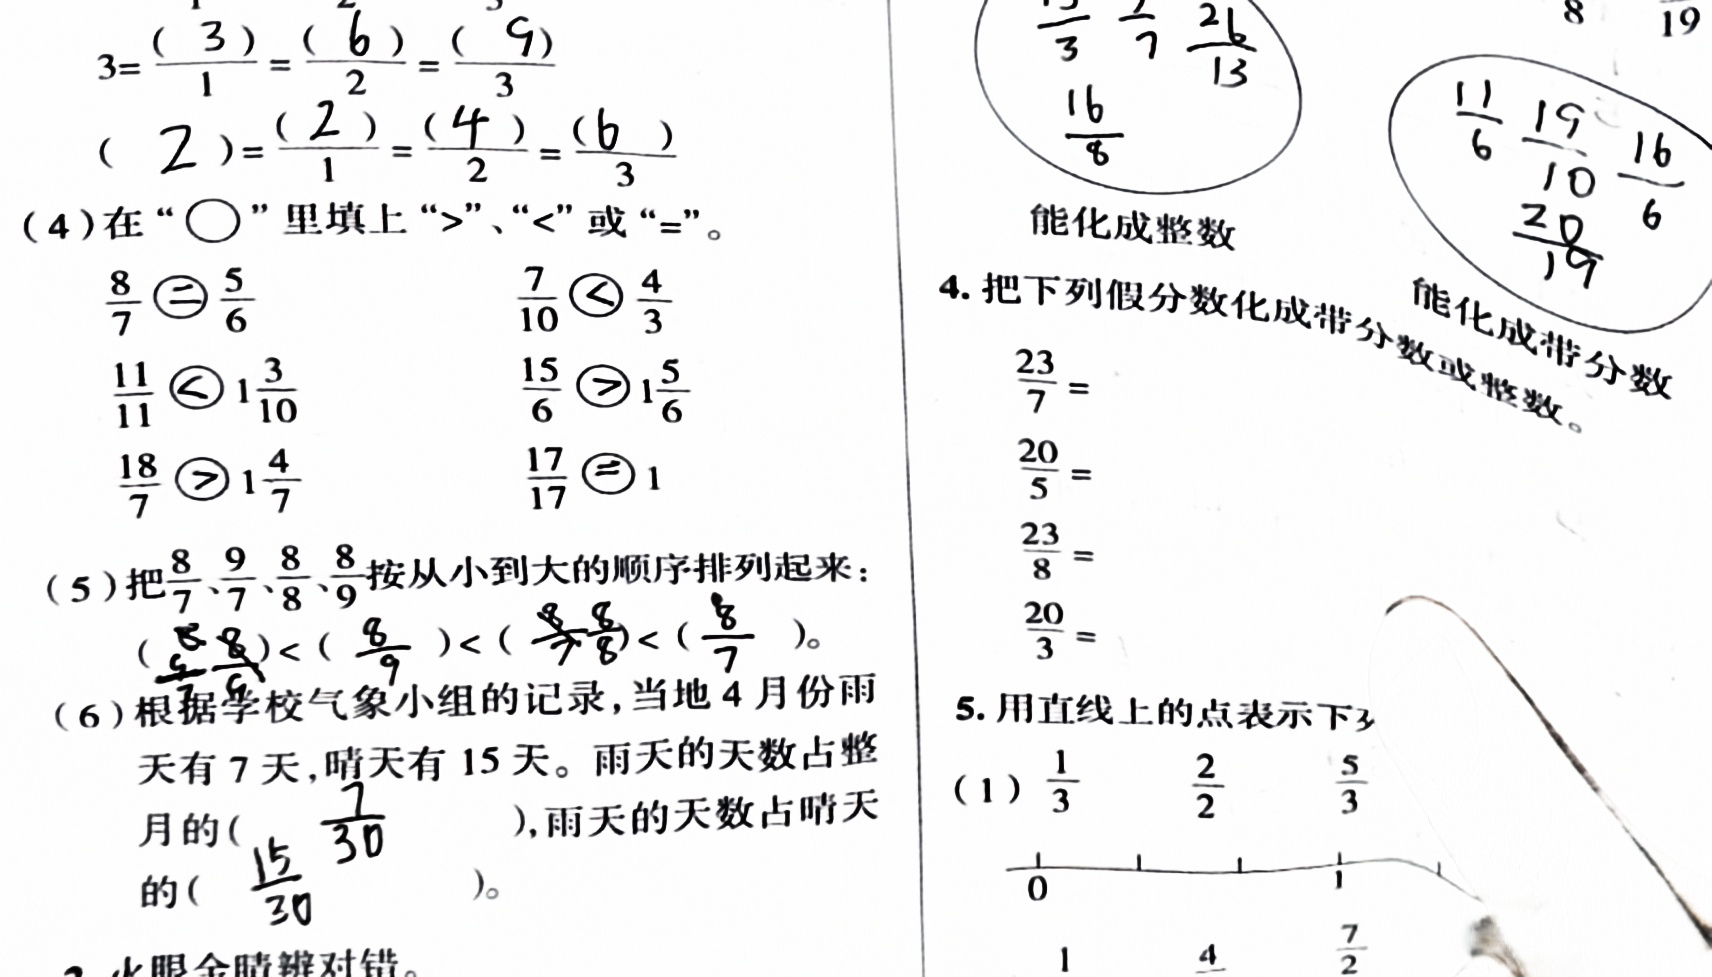 3=( 3 )/1=( 6 )/2=( 9)/3
( 2 )=( 2 )/1=( 4 )/2=(6 )/3
(4)在“○”里填上“>”、“<”或“=”。
8/7 = 5/6 7/10 < 4/3
11/11 < 1 3/10 15/6 > 1 5/6
18/7 > 1 4/7 17/17 = 1
(5)把8/7、9/7、8/8、8/9按从小到大的顺序排列起来:
( 9/7 )<( 8/9 )<( 8/8)<( 8/7 )。
(6)根据学校气象小组的记录,当地4月份雨
天有7天,晴天有15天。雨天的天数占整
月的( 7/30 ),雨天的天数占晴天
的( 15/30 )。
火眼金睛辨对错。
3 7 26/13
16/8
能化成整数
8 19
11/6 19/10 16/6
20/19
能化成带分数
4.把下列假分数化成带分数或整数。
23/7=
20/5=
23/8=
20/3=
5.用直线上的点表示下
(1) 1/3 2/2 5/3
0 1
1 4 7/2